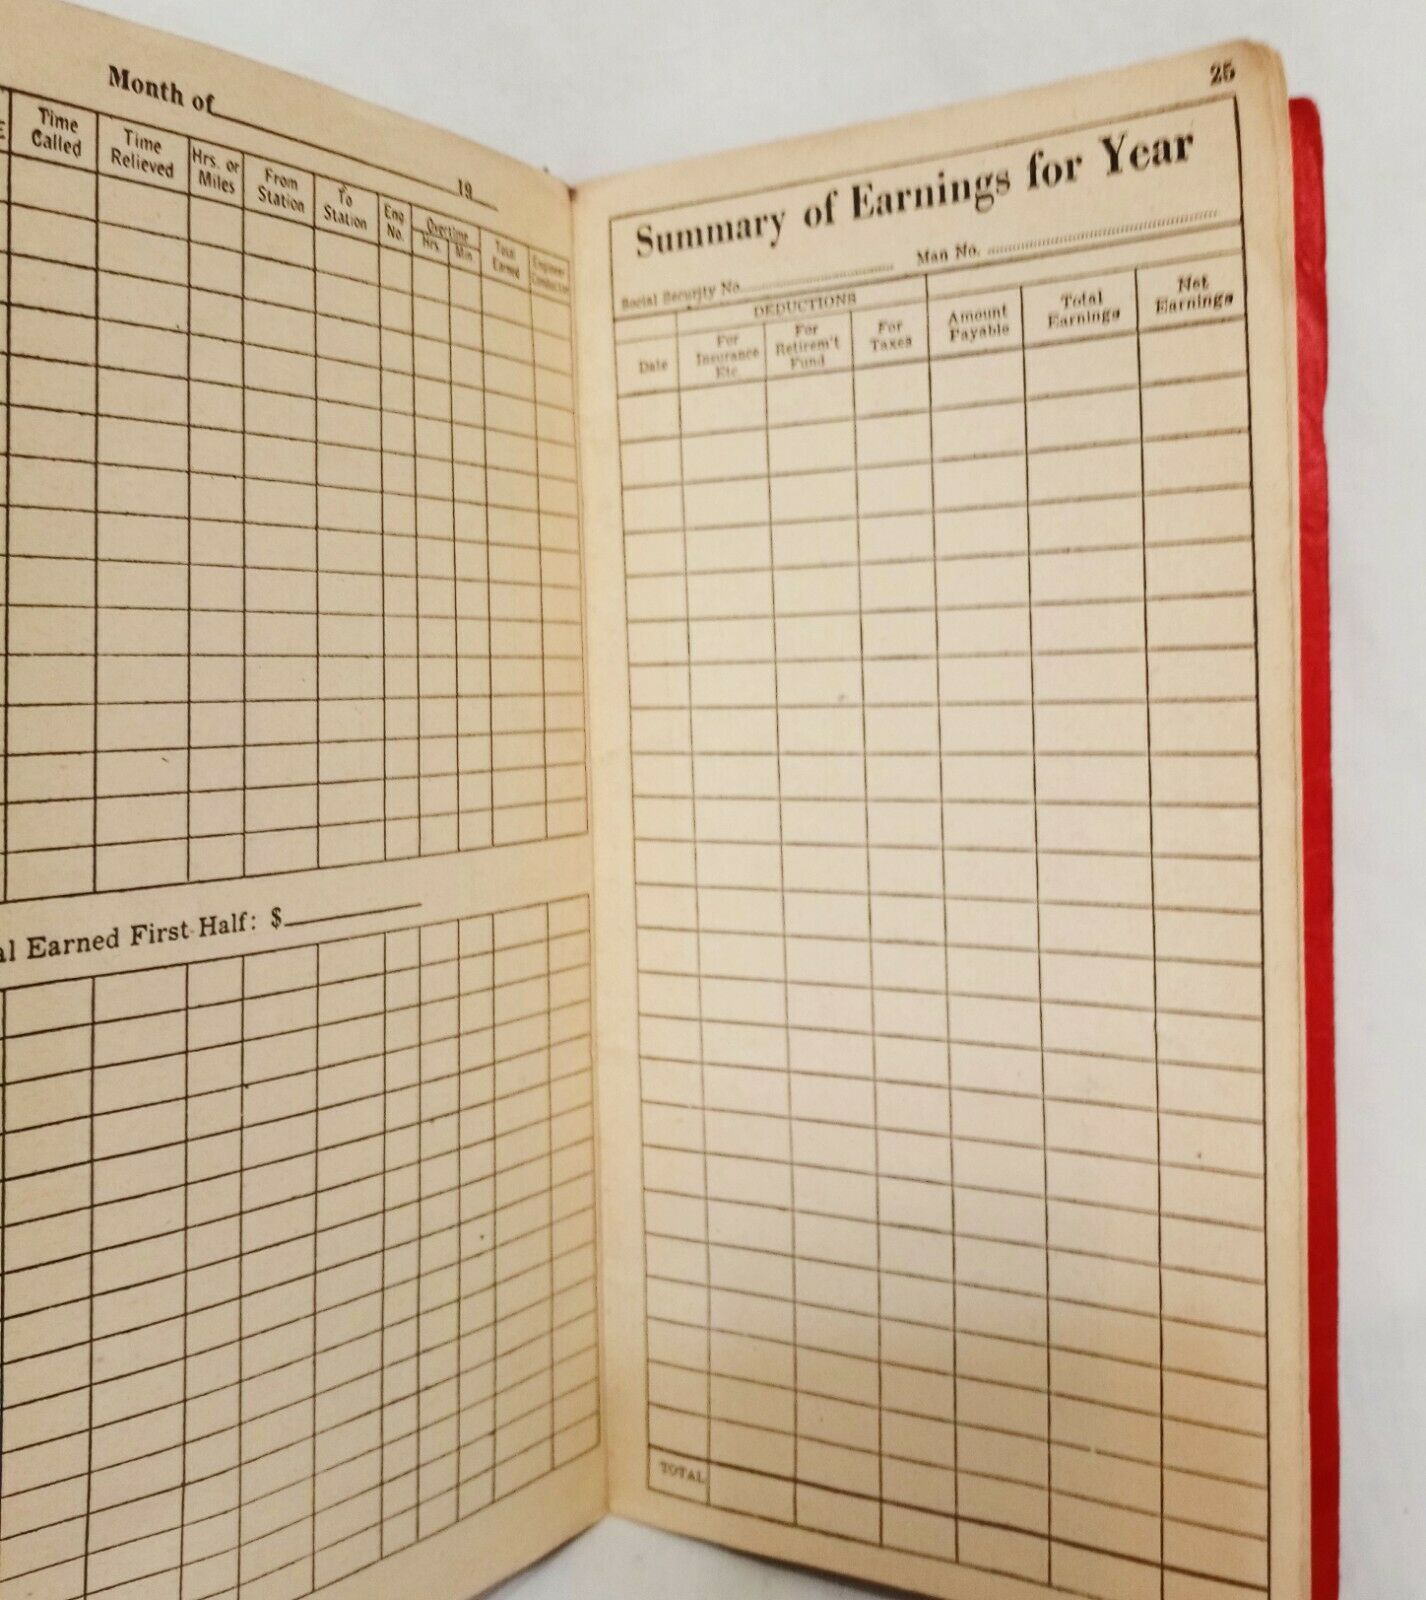 Month of
19
E
Time Called
Time Relieved
Hrs. or Miles
From Station
To Station
Eng No.
Overtime
Hrs.
Min
Total Earned
Engineer Conductor
al Earned First Half: $
25
Summary of Earnings for Year
Social Security No.
Man No.
DEDUCTIONS
Date
For Insurance Etc
For Retirem't Fund
For Taxes
Amount Payable
Total Earnings
Net Earnings
TOTAL